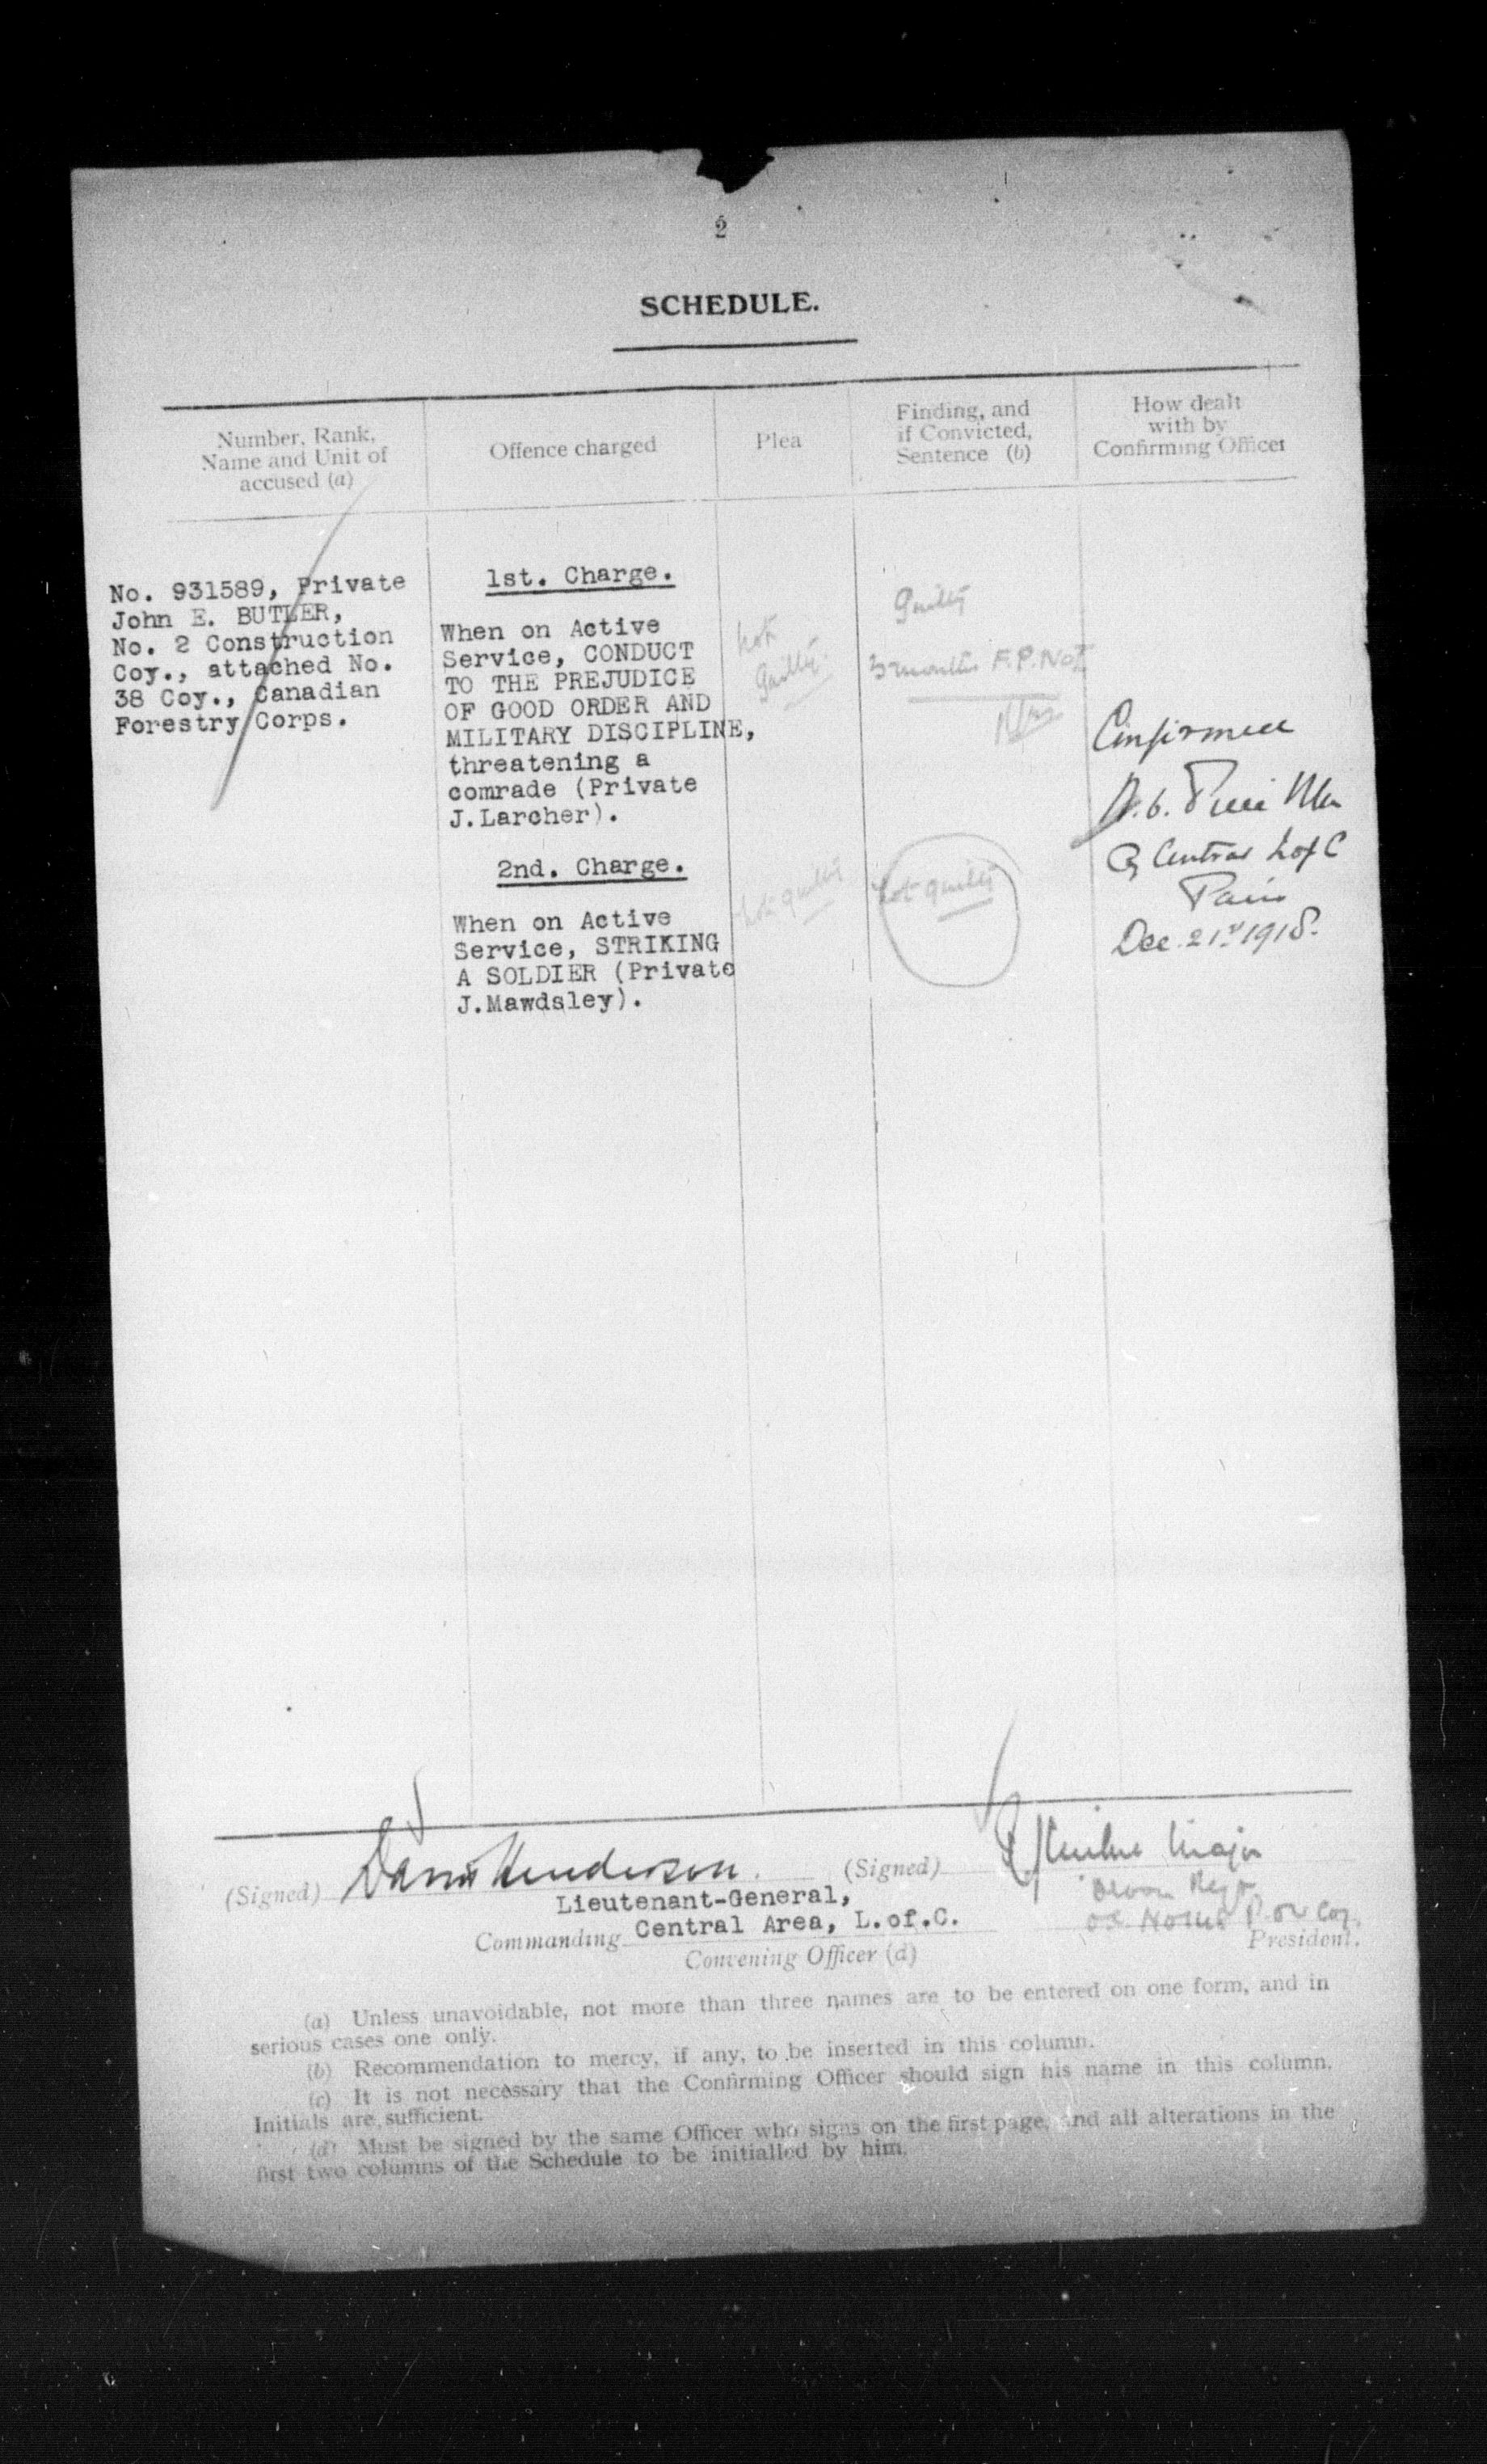 2
SCHEDULE.
Number, Rank,
Name and Unit of
accused (a)
Offence charged
Plea
Finding, and
if Convicted,
Sentence (b)
How dealt
with by
Confirming Officer
No. 931589, Private
John E. BUTLER,
No. 2 Construction
Coy., attached No.
38 Coy., Canadian
Forestry Corps.
1st. Charge.
When on Active
Service, CONDUCT
TO THE PREJUDICE
OF GOOD ORDER AND
MILITARY DISCIPLINE,
threatening a
comrade (Private
J.Larcher).
Not
guilty
Guilty
3 months F.P. No I
2nd. Charge.
When on Active
Service, STRIKING
A SOLDIER (Private
J.Mawdsley).
Not guilty
Not guilty
Confirmed
Central L of C
Paris
Dec. 21st 1918.
(Signed) David Henderson.
Lieutenant-General,
Commanding Central Area, L.of.C.
Convening Officer (d)
(Signed) Major
Devon Regt
P. of W Coy.
President.
(a) Unless unavoidable, not more than three names are to be entered on one form, and in
serious cases one only.
(b) Recommendation to mercy, if any, to be inserted in this column.
(c) It is not necessary that the Confirming Officer should sign his name in this column.
Initials are sufficient.
(d) Must be signed by the same Officer who signs on the first page, and all alterations in the
first two columns of the Schedule to be initialled by him.